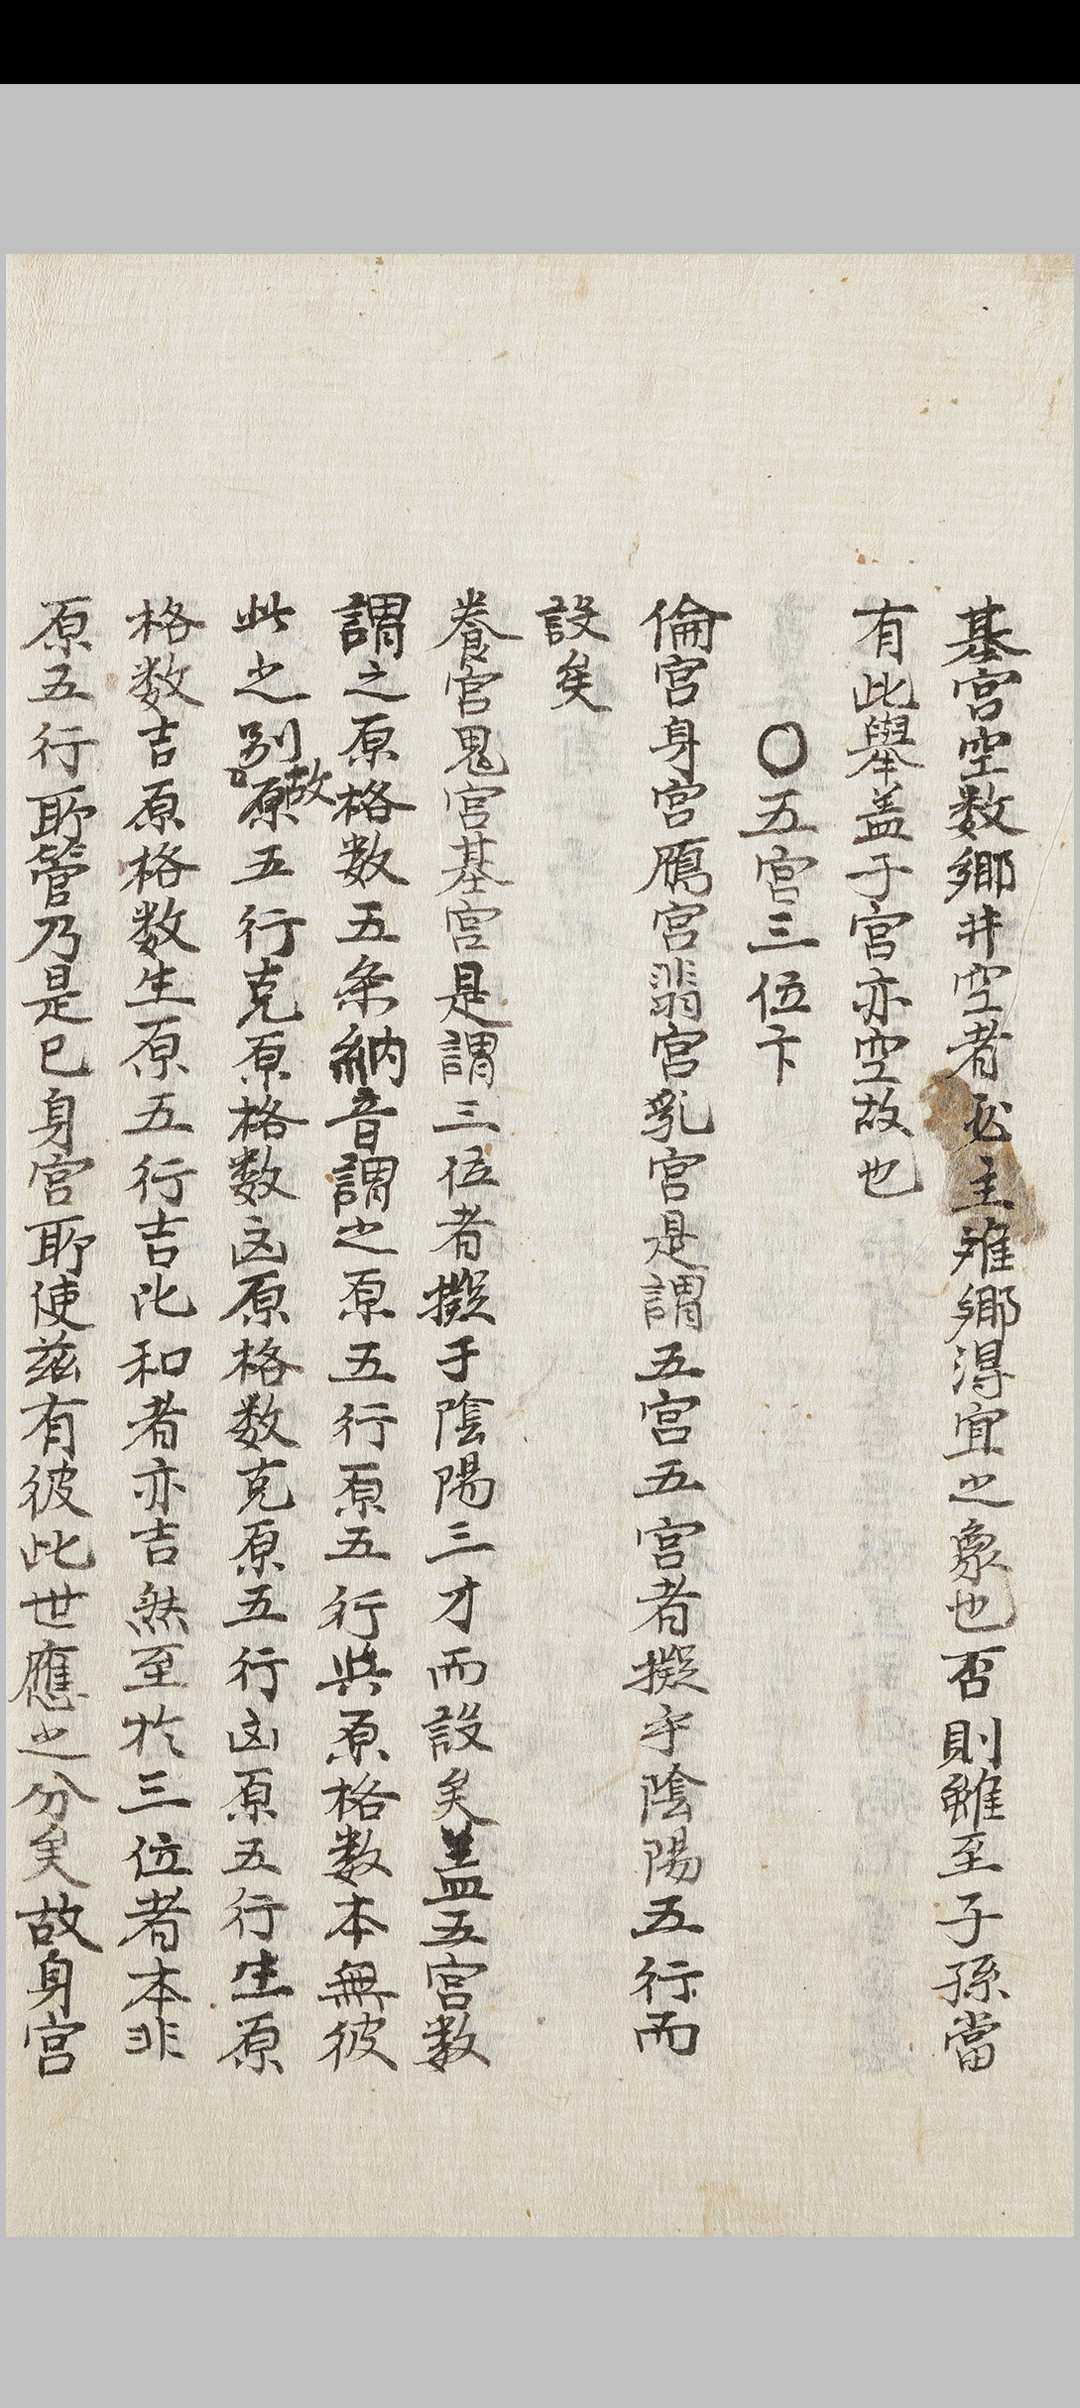 基宮空数鄉井空者必主难鄉得宜之象也否則雖至子孫當
有此舉盖子宮亦空故也
〇五宮三位卞
倫宮身宮鴈宮翡宮乳宮是謂五宮五宮者擬乎陰陽五行而
設矣
養宮鬼宮基宮是謂三位者擬于陰陽三才而設矣盖五宮数
謂之原格数五条納音謂之原五行原五行與原格数本無彼
此之别故原五行克原格数凶原格数克原五行凶原五行生原
格数吉原格数生原五行吉比和者亦吉然至於三位者本非
原五行所管乃是已身宮所使兹有彼此世應之分矣故身宮